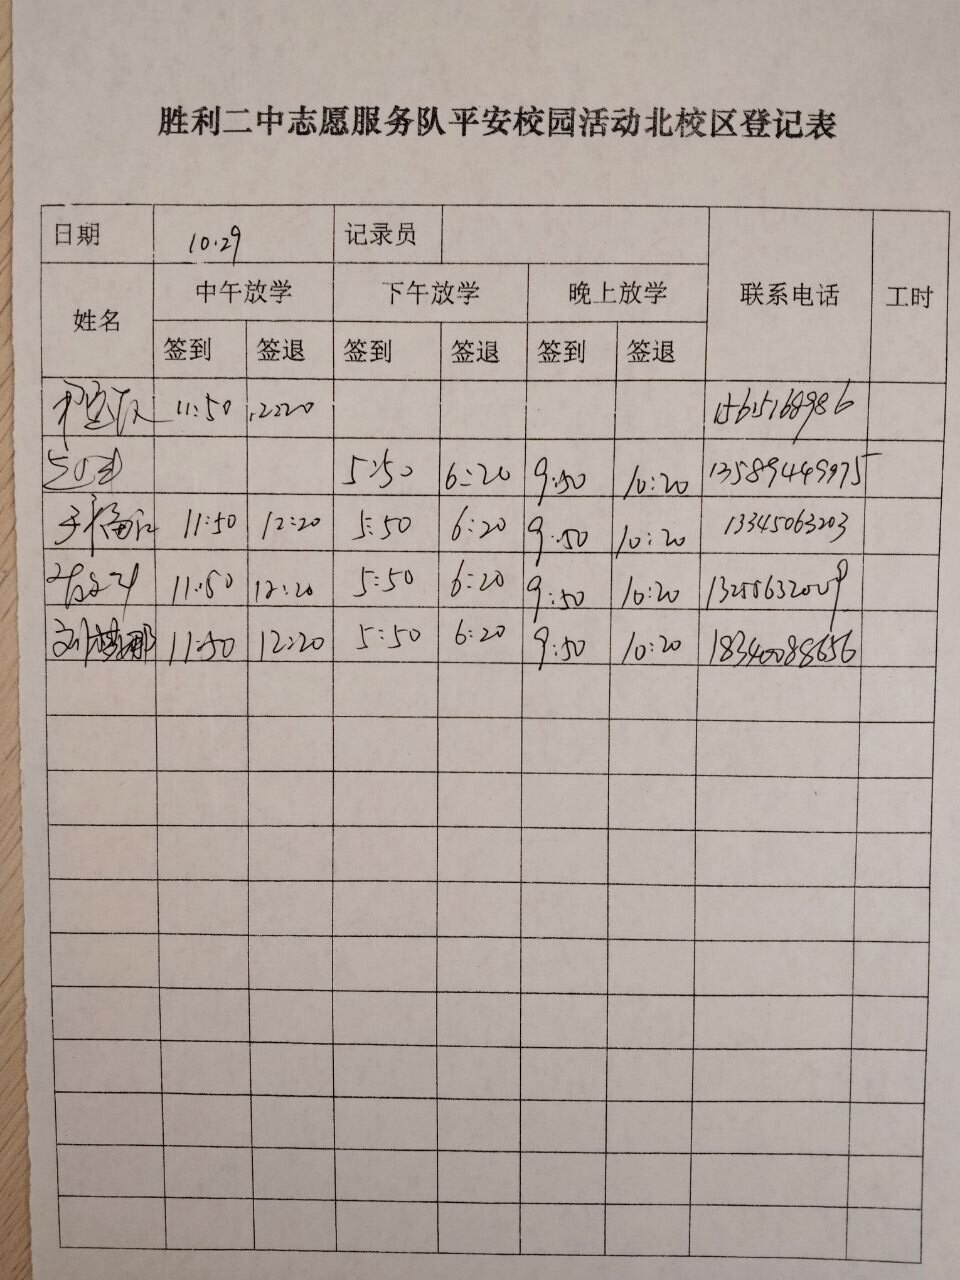 胜利二中志愿服务队平安校园活动北校区登记表
日期 10.29 记录员 联系电话 工时
姓名 中午放学 下午放学 晚上放学
签到 签退 签到 签退 签到 签退
11:50 12:20 15615168986
5:50 6:20 9:50 10:20 13589449975
于福江 11:50 12:20 5:50 6:20 9:50 10:20 13345063203
11:50 12:20 5:50 6:20 9:50 10:20 13255632009
刘梦娜 11:50 12:20 5:50 6:20 9:50 10:20 18340088656